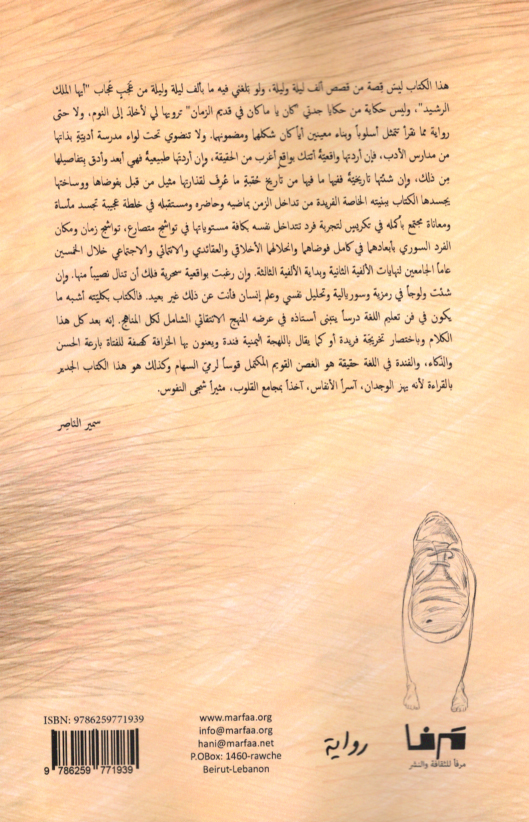 هذا الكتاب ليس قصة من قصص ألف ليلة وليلة، ولو بَلغتني فيه ما بألف ليلة وليلة من عَجَبٍ عُجاب "أيها الملك
الرشيد"، وليس حكاية من حكايا جدتي "كان يا ماكان في قديم الزمان" ترويها لي لأخلد إلى النوم، ولا حتى
رواية مما نقرأ تتمثل أسلوباً وبناء معينين أياً كان شكلها ومضمونها، ولا تنضوي تحت لواء مدرسة أدبية بذاتها
من مدارس الأدب، فإن أردتها واقعيّة أتتك بواقع أغرب من الحقيقة، وإن أردتها طبيعية فهي أبعد وأدق بتفاصيلها
مِن ذلك، وإن شئتها تاريخيّة ففيها ما فيها من تاريخ حُقبةٍ ما عُرِفَ لقذارتها مثيل من قبل بفوضاها ووساختها
يجسدها الكتاب ببنيته الخاصة الفريدة من تداخل الزمن بماضيه وحاضره ومستقبله في خلطة عجيبة تجسد مأساة
ومعاناة مجتمع بأكمله في تكريس لتجربة فرد تتداخل نفسه بكافة مستوياتها في تواشج متصارع، تواشج زمان ومكان
الفرد السوري بأبعادهما في كامل فوضاهما وانحلالهما الأخلاقي والعقائدي والانتمائي والاجتماعي خلال الخمسين
عاماً الجامعين لنهايات الألفية الثانية وبداية الألفية الثالثة. وإن رغبت بواقعية سحرية فلك أن تنال نصيباً منها، وإن
شئت ولوجاً في رمزية وسوريالية وتحليل نفسي وعلم إنسان فأنت عن ذلك غير بعيد. فالكتاب بكليّته أشبه ما
يكون في فن تعليم اللغة درساً يتبنى أستاذه في عرضه المنهج الانتقائي الشامل لكل المناهج. إنه بعد كل هذا
الكلام وباختصار تخريجَة فريدة أو كما يقال باللهجة اليمنية فندة ويعنون بها الخرافة كصفة للفتاة بارعة الحسن
والذكاء، والفندة في اللغة حقيقة هو الغصن القويم المكتمل قوساً لرميّ السهام وكذلك هو هذا الكتاب الجدير
بالقراءة لأنه يهز الوجدان، آسراً الأنفاس، آخذاً بمجامع القلوب، مثيراً شجى النفوس.
سمير الناصر
ISBN: 9786259771939
9 786259 771939
www.marfaa.org
info@marfaa.org
hani@marfaa.net
P.OBox: 1460-rawche
Beirut-Lebanon
رواية
مرفأ
مرفأ للثقافة والنشر